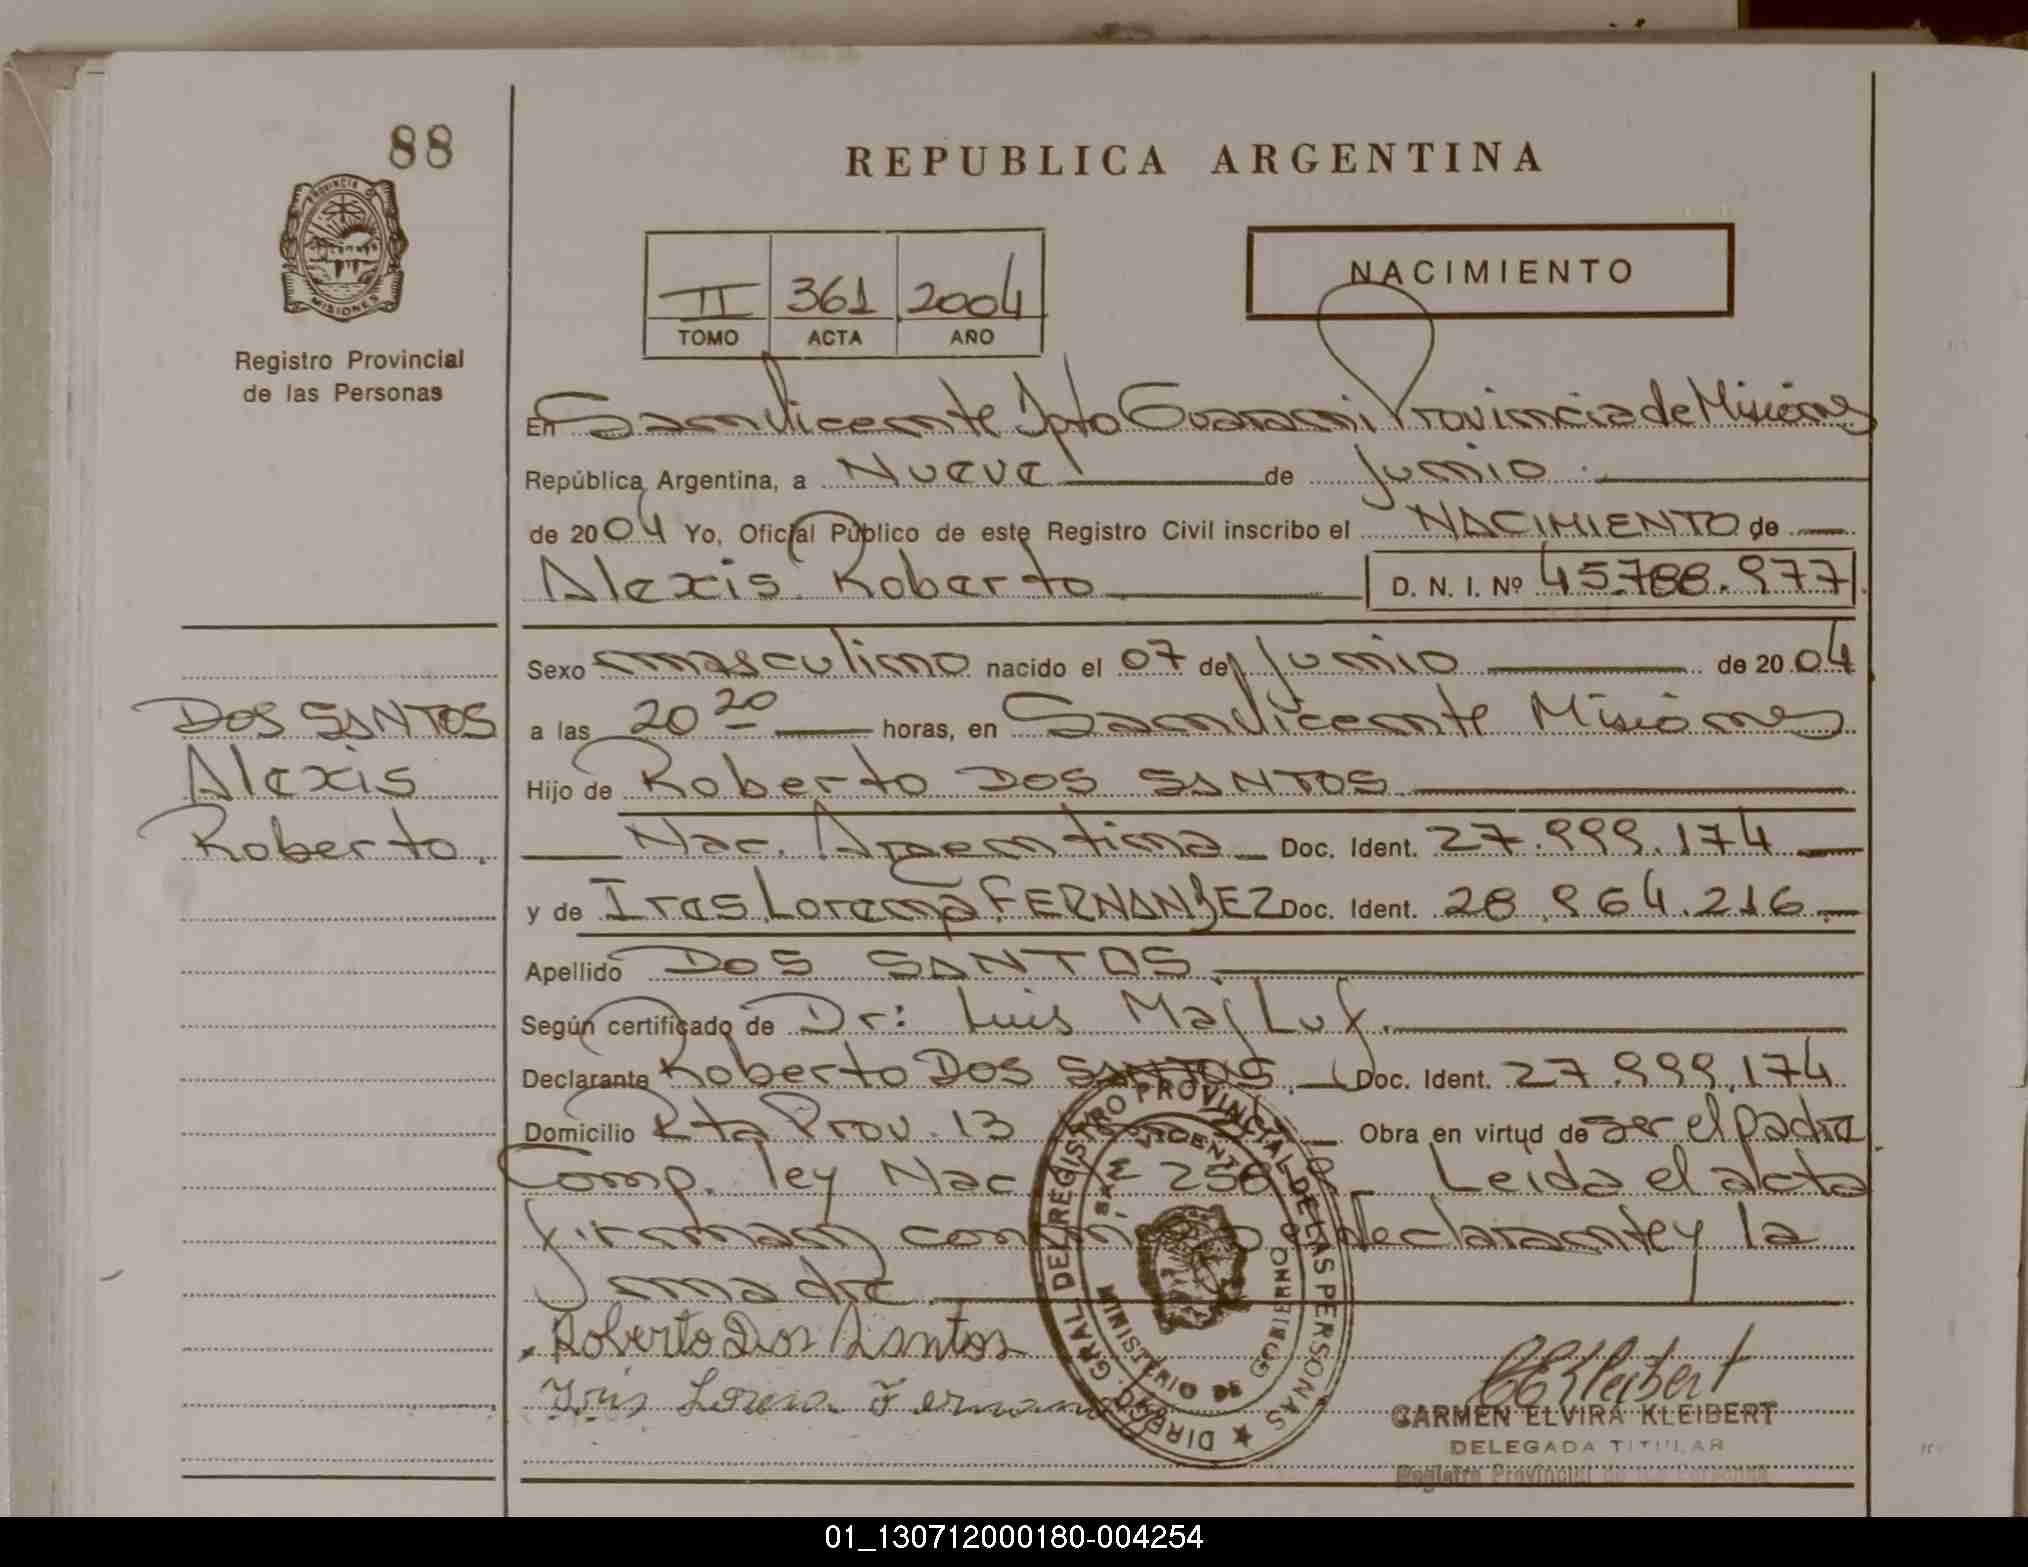 88
REPUBLICA ARGENTINA
PROVINCIA D
MISIONES
Registro Provincial
de las Personas
II 361 2004
TOMO ACTA AÑO
NACIMIENTO
En San Vicente Dpto Guarani Provincia de Misiones
República Argentina, a Nueve de Junio
de 2004 Yo, Oficial Público de este Registro Civil inscribo el NACIMIENTO de
Alexis Roberto D. N. I. Nº 45.788.977
Sexo masculino nacido el 07 de Junio de 2004
a las 20 20 horas, en San Vicente Misiones
Hijo de Roberto DOS SANTOS
Nac. Argentina Doc. Ident. 27.999.174
y de Iras Lorena FERNANDEZ Doc. Ident. 28.964.216
Apellido DOS SANTOS
Según certificado de Dr: Luis Majluf.
Declarante Roberto DOS SANTOS. Doc. Ident. 27.999.174
Domicilio Rta Prov. 13 Obra en virtud de ser el padre
Comp. ley Nac Leida el acta
firman declarante y la
madre
DOS SANTOS
Alexis
Roberto.
Roberto Dos Santos
Iris Lorena
DIRECC. GRAL DEL REGISTRO PROVINCIAL DE LAS PERSONAS
MINISTERIO DE GOBIERNO
CEKleibert
CARMEN ELVIRA KLEIBERT
DELEGADA TITULAR
Registro Provincial de las Personas
01_130712000180-004254